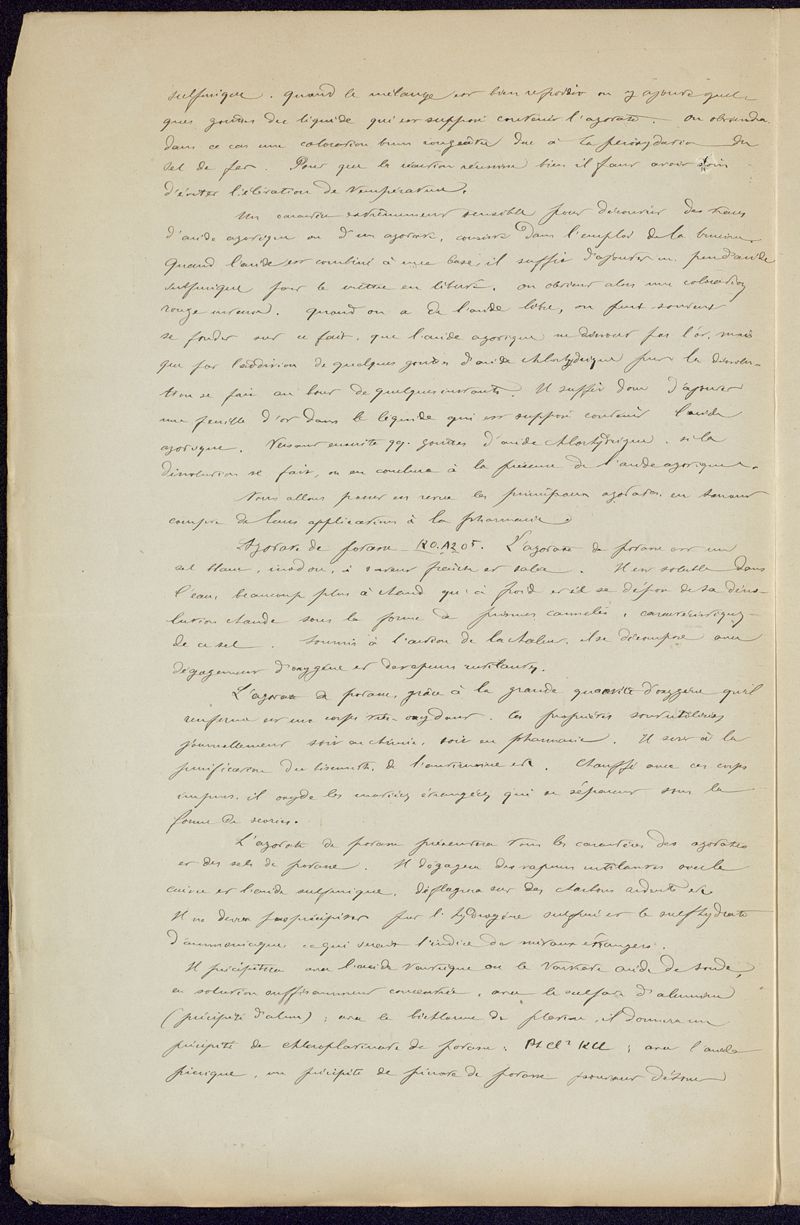 sulfurique. Quand le mélange est bien refroidi on y ajoute quel-
ques gouttes du liquide qui est supposé contenir l'azotate. On obtiendra
dans ce cas une coloration brun rougeâtre due à la peroxydation du
sel de fer. Pour que la réaction réussisse bien il faut avoir soin
d'éviter l'élévation de température.
Un caractère extrêmement sensible pour découvrir des traces
d'acide azotique ou d'un azotate, consiste dans l'emploi de la brucine.
Quand l'acide est combiné à une base, il suffit d'ajouter un peu d'acide
sulfurique pour le mettre en liberté. On obtient alors une coloration
rouge intense. Quand on a de l'acide libre, on peut souvent
se fonder sur ce fait, que l'acide azotique ne dissout pas l'or, mais
que par l'addition de quelques gouttes d'acide chlorhydrique pur la dissolu-
tion se fait au bout de quelques instants. Il suffit donc d'ajouter
une feuille d'or dans le liquide qui est supposé contenir l'acide
azotique. Versant ensuite qq. gouttes d'acide chlorhydrique, si la
dissolution se fait, on en conclura à la présence de l'acide azotique.
Nous allons passer en revue les principaux azotates en tenant
compte de leurs applications à la pharmacie.
Azotate de potasse - KO.AzO5. L'azotate de potasse est un
sel blanc, inodore, à saveur fraîche et salée. Il est soluble dans
l'eau, beaucoup plus à chaud qu'à froid et il se dépose de sa disso-
lution chaude sous la forme de prismes cannelés, caractéristiques
de ce sel. Soumis à l'action de la chaleur, il se décompose avec
dégagement d'oxygène et de vapeurs rutilantes.
L'azotate de potasse, grâce à la grande quantité d'oxygène qu'il
renferme est un corps très oxydant. Ces propriétés sont utilisées
journellement soit en chimie, soit en pharmacie. Il sert à la
purification du bismuth, de l'antimoine etc. Chauffé avec ces corps
impurs, il oxyde les matières étrangères qui se séparent sous la
forme de scories.
L'azotate de potasse présentera tous les caractères des azotates
et des sels de potasse. Il dégagera des vapeurs rutilantes avec le
cuivre et l'acide sulfurique, déflagrera sur des charbons ardents etc.
Il ne devra pas précipiter par l'hydrogène sulfuré et le sulfhydrate
d'ammoniaque, ce qui serait l'indice de métaux étrangers.
Il précipitera avec l'acide tartrique ou le tartrate acide de soude,
en solution suffisamment concentrée, avec le sulfate d'alumine
(précipité d'alun); avec le bichlorure de platine, il donnera un
précipité de chloroplatinate de potasse: PtCl2 KCl; avec l'acide
picrique, un précipité de picrate de potasse pouvant